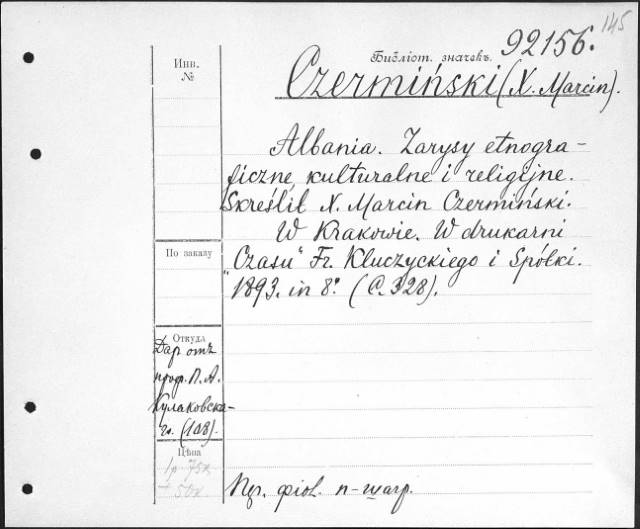 145
92156.
Инв.
№
Библіот. значекъ.
Czermiński (X. Marcin).
Albania. Zarysy etnogra-
ficzne, kulturalne i religijne.
Skreślił X. Marcin Czermiński.
W Krakowie. W drukarni
По заказу
"Czasu" Fr. Kluczyckiego i Spółki.
1893. in 8º. (С. 328).
Откуда
Дар отъ
проф. П. А.
Кулаковска-
го. (108).
Цѣна
1р 75к
50к